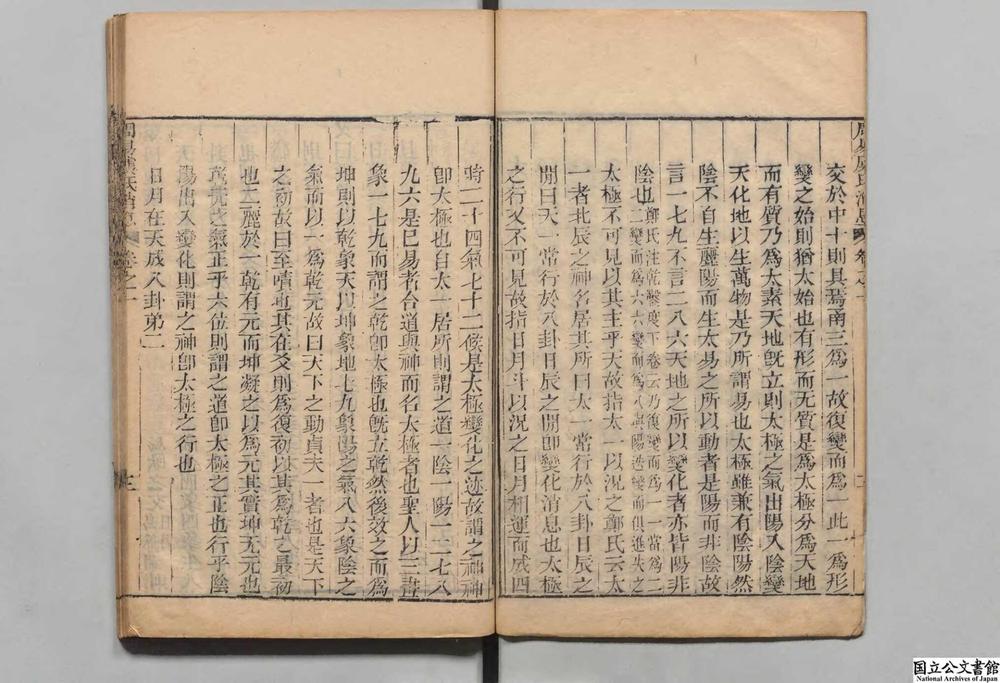 交於中十則具焉南三為一故復變而為一此一為形
變之始則猶太始也有形而无質是為太極分為天地
而有質乃為太素天地旣立則太極之氣出陽入陰變
天化地以生萬物是乃所謂易也太極雖兼有陰陽然
陰不自生麗陽而生太易之所以動者是陽而非陰故
言一七九不言二八六天地之所以變化者亦皆陽非
陰也鄭氏注乾鑿度下卷云乃復變而為一一當為二
二變而為六六變而為八與陽造變而俱進失之
太極不可見以其主乎天故指太一以況之鄭氏云太
一者北辰之神名居其所曰太一常行於八卦日辰之
閒曰天一常行於八卦日辰之閒卽變化消息也太極
之行又不可見故指日月斗以況之日月相運而成四
時二十四氣七十二候是太極變化之迹故謂之神神
卽大極也自太一居所則謂之道一陰一陽一二七八
九六是已易者合道與神而名大極者也聖人以三畫
象一七九而謂之乾卽太極也旣立乾然後效之而為
坤則以乾象天以坤象地七九象陽之氣八六象陰之
氣而以一為乾元故曰天下之動貞夫一者也是天下
之初故曰至嘖也其在爻則為復初以其為乾之最初
也二麗於一乾有元而坤凝之以為元其實坤无元也
乾元之氣正乎六位則謂之道卽太極之正也行乎陰
陽出入變化則謂之神卽太極之行也
日月在天成八卦弟二
周易虞氏消息 卷之一
国立公文書館
National Archives of Japan